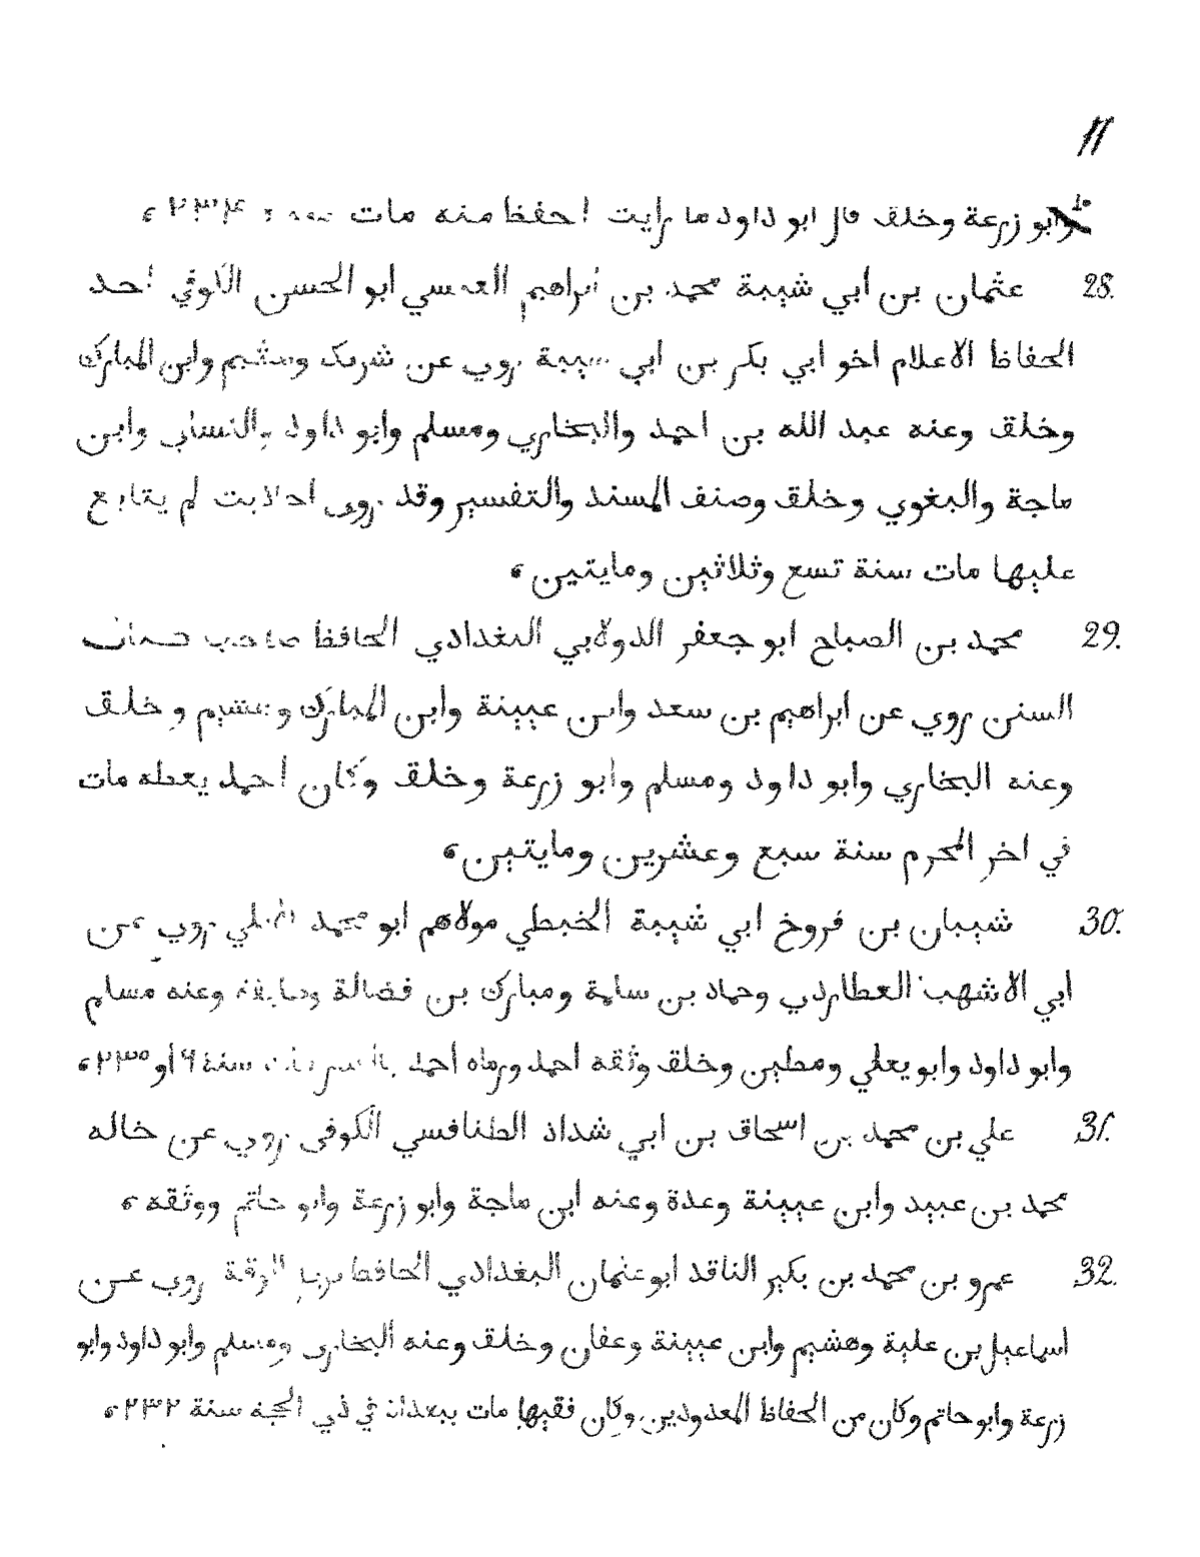 11
وابو زرعة وخلق قال ابو داود ما رايت احفظ منه مات سنة ٢٣٤
28. عثمان بن ابي شيبة محمد بن ابراهيم العبسي ابو الحسن الكوفي احد
الحفاظ الاعلام اخو ابي بكر بن ابي شيبة روي عن شريك وهشيم وابن المبارك
وخلق وعنه عبد الله بن احمد والبخاري ومسلم وابو داود والنساي وابن
ماجة والبغوي وخلق وصنف المسند والتفسير وقد روى احاديث لم يتابع
عليها مات سنة تسع وثلاثين ومايتين
29. محمد بن الصباح ابو جعفر الدولابي البغدادي الحافظ صاحب كتاب
السنن روي عن ابراهيم بن سعد وابن عيينة وابن المبارك وهشيم وخلق
وعنه البخاري وابو داود ومسلم وابو زرعة وخلق وكان احمد يعظمه مات
في اخر المحرم سنة سبع وعشرين ومايتين
30. شيبان بن فروخ ابي شيبة الحبطي مولاهم ابو محمد الابلي روي عن
ابي الاشهب العطاردي وحماد بن سلمة ومبارك بن فضالة وطايفة وعنه مسلم
وابو داود وابو يعلي ومطين وخلق وثقه احمد ورماه احمد سنة ٦ او ٢٣٥
31. علي بن محمد بن اسحاق بن ابي شداد الطنافسي الكوفى روي عن خاله
محمد بن عبيد وابن عيينة وعدة وعنه ابن ماجة وابو زرعة وابو حاتم ووثقه
32. عمرو بن محمد بن بكير الناقد ابو عثمان البغدادي الحافظ نزيل الرقة روي عن
اسماعيل بن علية وهشيم وابن عيينة وعفان وخلق وعنه البخارى ومسلم وابو داود وابو
زرعة وابو حاتم وكان من الحفاظ المعدودين وكان فقيها مات ببغداد في ذي الحجة سنة ٢٣٢